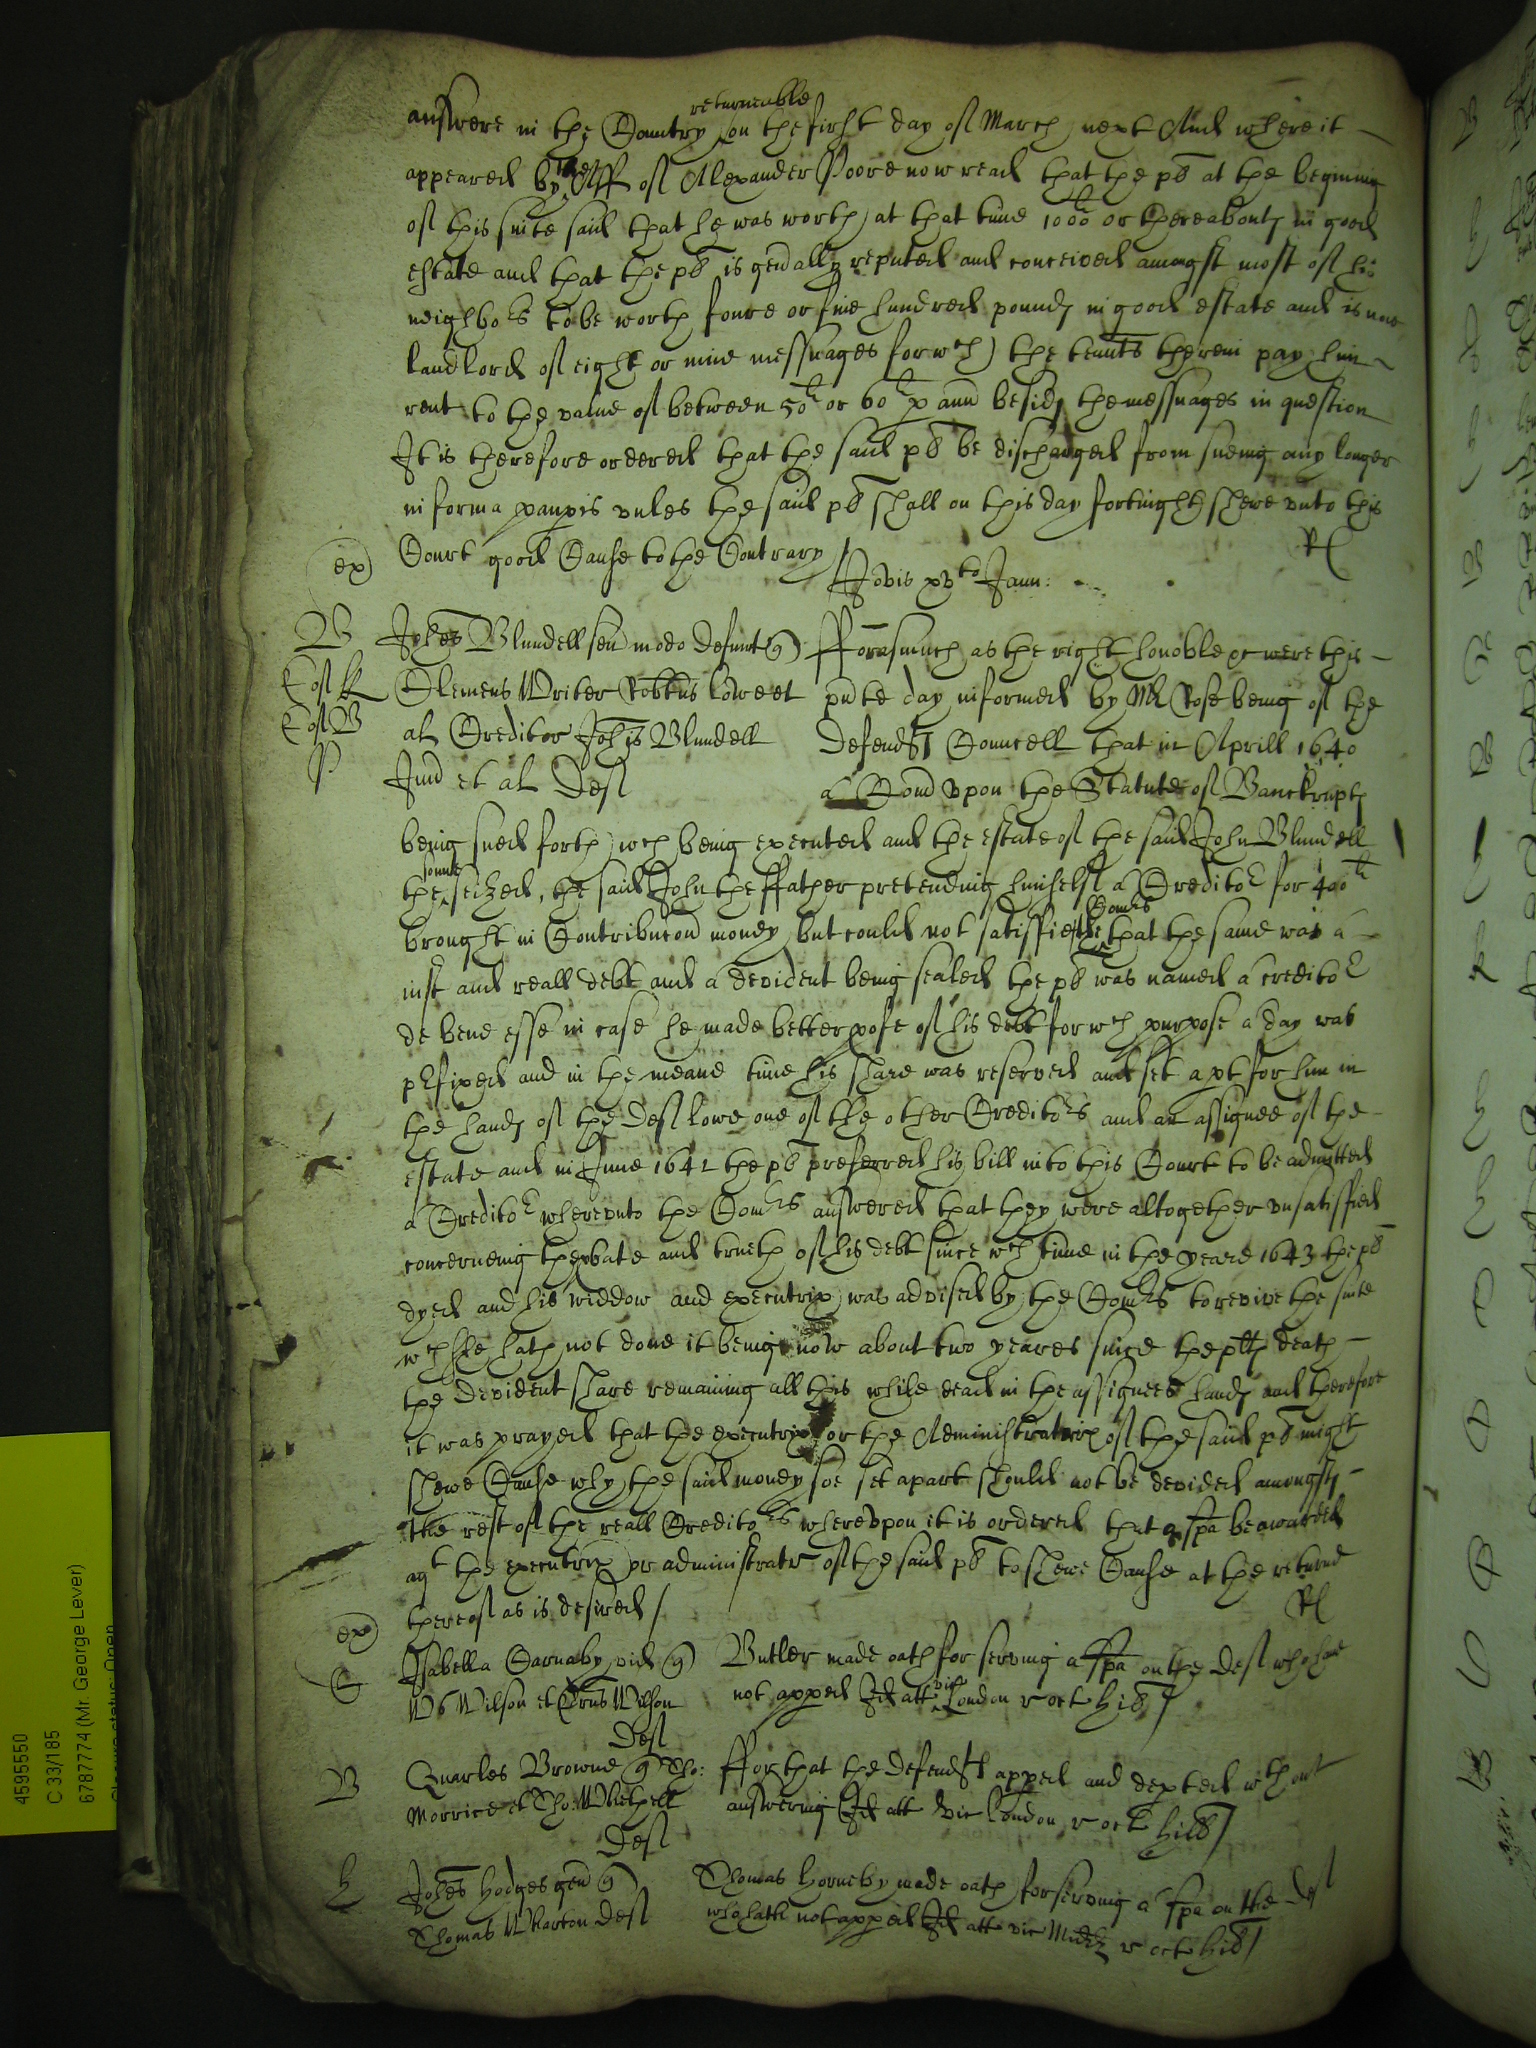 returneable
answere in the Country on the first day of March next And where it
appeared by the Aff of Alexander Poore now read that the plt at the begining
of this suite said that he was worth at that time 1000li or thereabouts in good
estate and that the plt is genally reputed and conceived amongst most of his
neighbors to be worth foure or five hundred pounds in good estate and is now
landlord of eight or nine messuages for wch the tennts therein pay him
rent to the value of between 50li or 60li p ann besids the messuages in question
It is therefore ordered that the said plt be discharged from sueing any longer
in forma paupis unles the said plt shall on this day fortnight shewe unto this
Court good Cause to the Contrary / Rl
ex
Jovis xvto Janu:
B
Johes Blundell sen modo defunct q) Fforasmuch as the right honoble &c were this
Clemens Writer Robtus Lowe et pnte day informed by Mr Rose being of the
al Creditor Johis Blundell Defendts Councell that in Aprill 1640
P
Jun et al Def a Comn upon the Statute of Banckrupts
being sued forth wch being executed and the estate of the said John Blundell
the sonne seized, the said John the ffather pretending himself a Creditor for 400li
brought in Contribucon money but could not satisfie the Comrs that the same was a
iust and reall debt and a devident being sealed the plt was named a creditor
de bene esse in case he made better profe of his debt for wch purpose a day was
prfixed and in the meane time his share was reserved and set apt for him in
the hands of the Def Lowe one of the other Creditors and an assignee of the
estate and in June 1641 the plt preferred his bill into this Court to be admitted
a Creditor whereunto the Comrs answered that they were altogether unsatisfied
concerneing the probate and trueth of his debt since wch time in the yeare 1643 the plt
dyed and his widdow and executrix was advised by the Comrs to revive the suite
wch she hath not done it being now about two yeares since the plts death
the devident share remaining all this while dead in the assignees hands and therefore
it was prayed that the executrix or the Administratrix of the said plt might
shewe Cause why the said money soe set apart should not be devided amongst
the rest of the reall Creditors whereupon it is ordered that a spa be awarded
agt the executrix or administratr of the said plt to shewe Cause at the returne
thereof as is desired / Rl
ex
C
Isabella Carnaby vid q) Butler made oath for serving a spa on the Def who have
Wm Wilson et Wilson not apped Id att vic London r oct Hill /
Def
B
Quarles Browne q Tho: Ffor that the defendts apped and depted without
Morrice et Tho: Def answering Id att vic London r oct Hill /
H
Johes Hodges gen q) Thomas Horneby made oath for serving a spa on the Def
Thomas Wharton Def who hath not apped Id att vic Midds r oct Hill /
4595550
C 33/185
6787774 (Mr. George Lever)
Closure status: Open